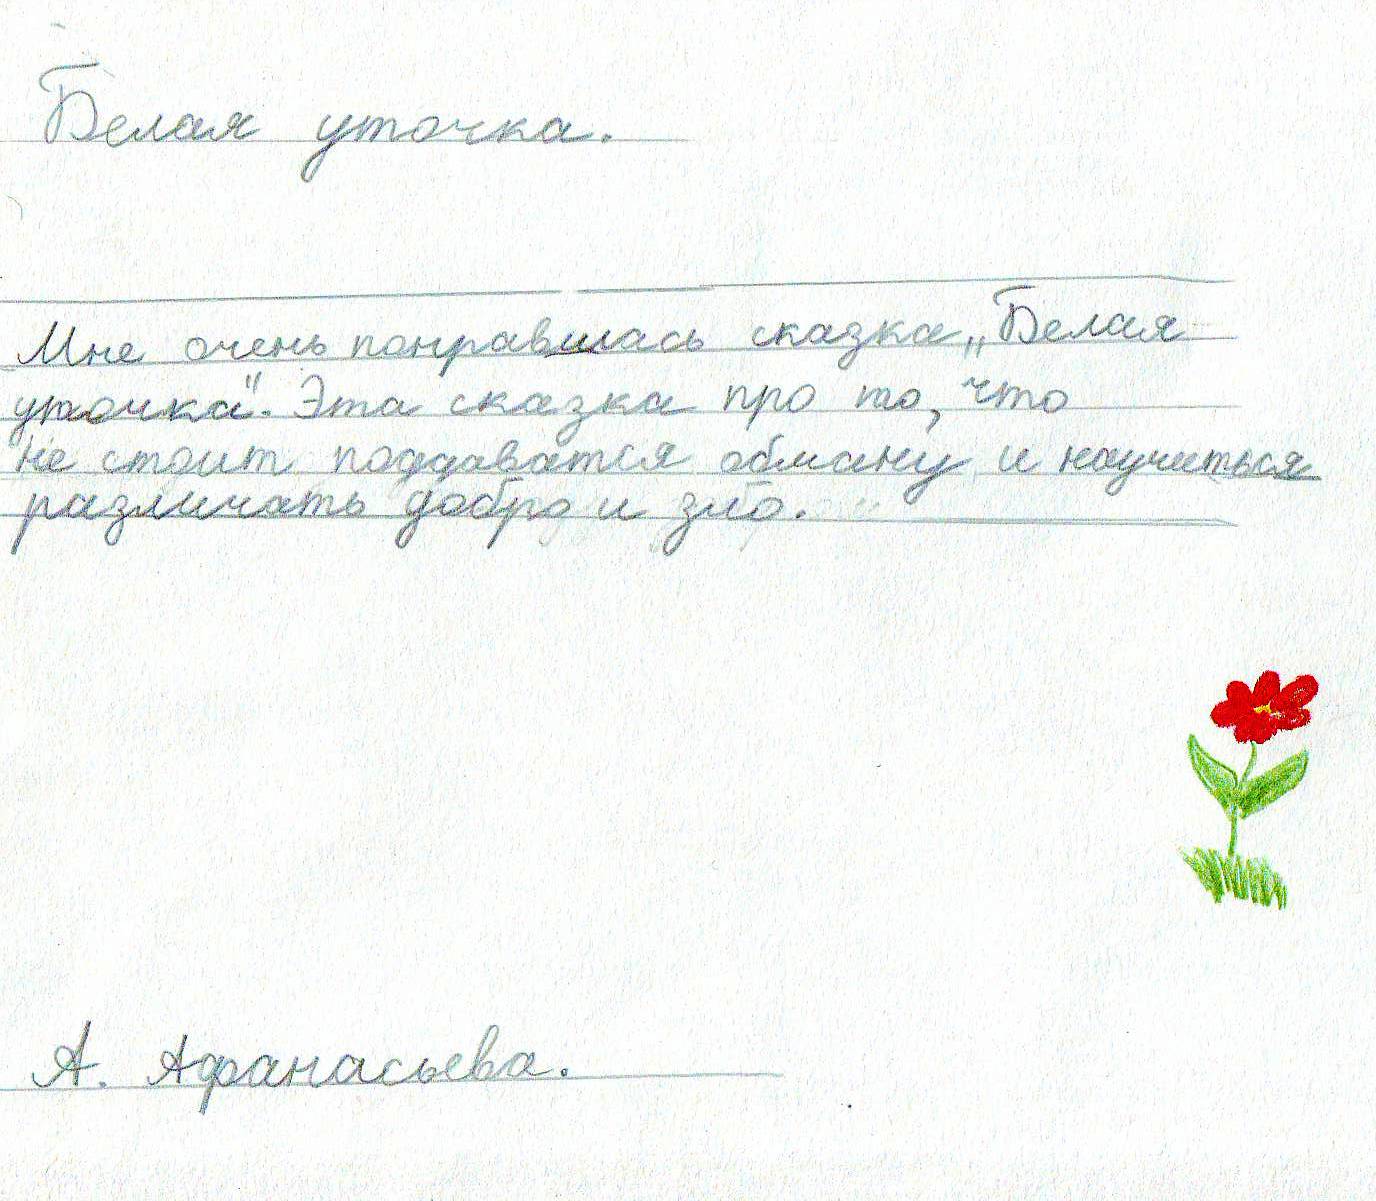 Белая уточка.
Мне очень понравилась сказка „Белая
уточка". Эта сказка про то, что
не стоит поддаватся обману и научиться
различать добро и зло.
А. Афанасьева.